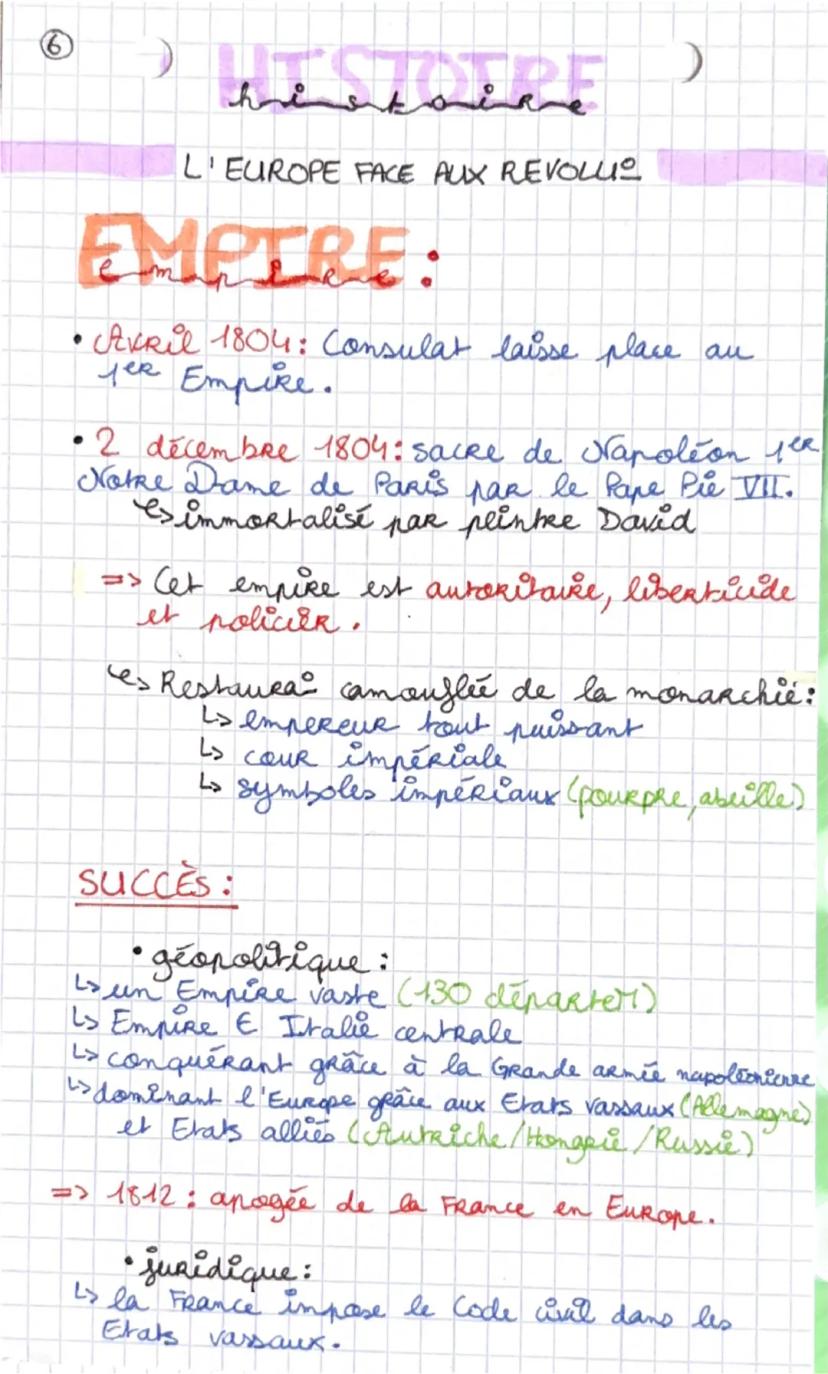 6
HISTOIRE
histoire
L'EUROPE FACE AUX REVOLU°
EMPIRE:
empire
• Avril 1804: Consulat laisse place au
1er Empire.
• 2 décembre 1804: sacre de Napoléon 1er
Notre Dame de Paris par le Pape Pie VII.
↳ immortalisé par peintre David
=> Cet empire est autoritaire, liberticide
et policier.
↳ Restaura° camouflée de la monarchie:
↳ empereur tout puissant
↳ cour impériale
↳ symboles impériaux (pourpre, abeille)
SUCCÈS:
• géopolitique:
↳ un Empire vaste (130 départem)
↳ Empire € Italie centrale
↳ conquérant grâce à la Grande armée napoléonienne
↳ dominant l'Europe grâce aux Etats vassaux (Allemagne)
et Etats alliés (Autriche/Hongrie/Russie)
=> 1812: apogée de la France en Europe.
• juridique:
↳ la France impose le Code civil dans les
Etats vassaux.